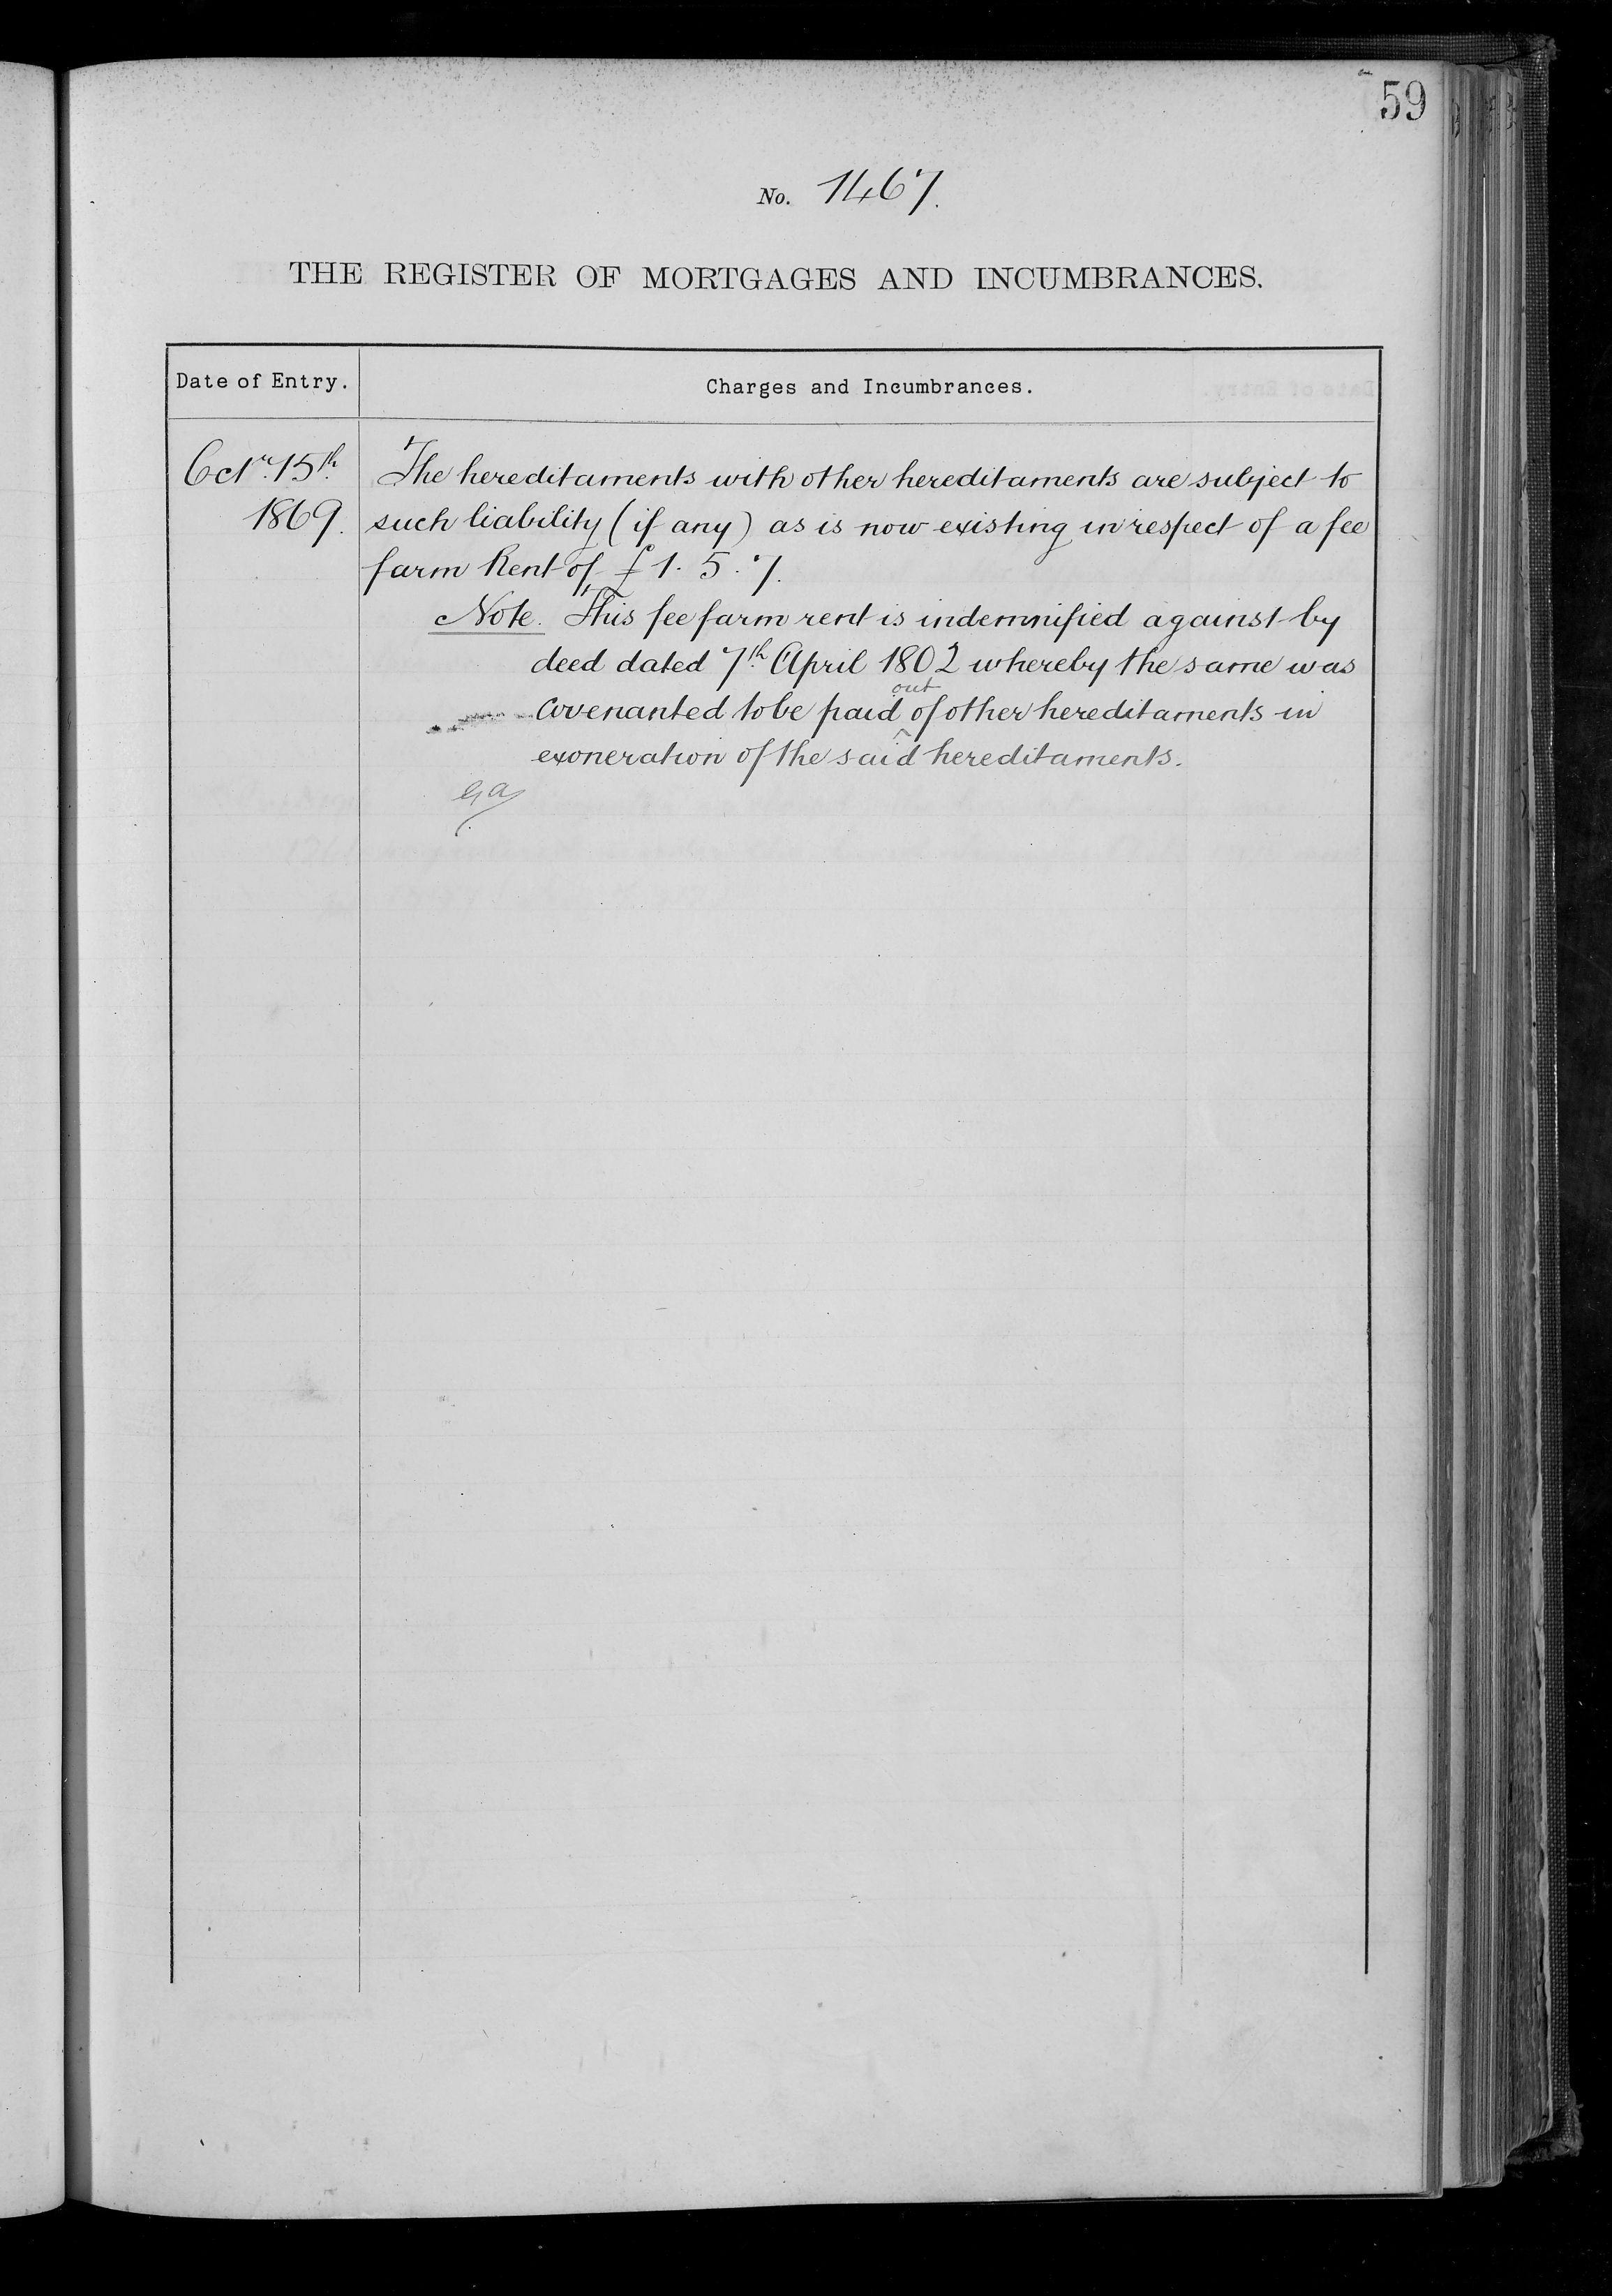 59
No. 1467.
THE REGISTER OF MORTGAGES AND INCUMBRANCES.
Date of Entry.
Charges and Incumbrances.
Octr. 15th.
1869.
The hereditaments with other hereditaments are subject to
such liability (if any) as is now existing in respect of a fee
farm Rent of £1. 5. 7.
Note. This fee farm rent is indemnified against by
deed dated 7th. April 1802 whereby the same was
covenanted to be paid out of other hereditaments in
exoneration of the said hereditaments.